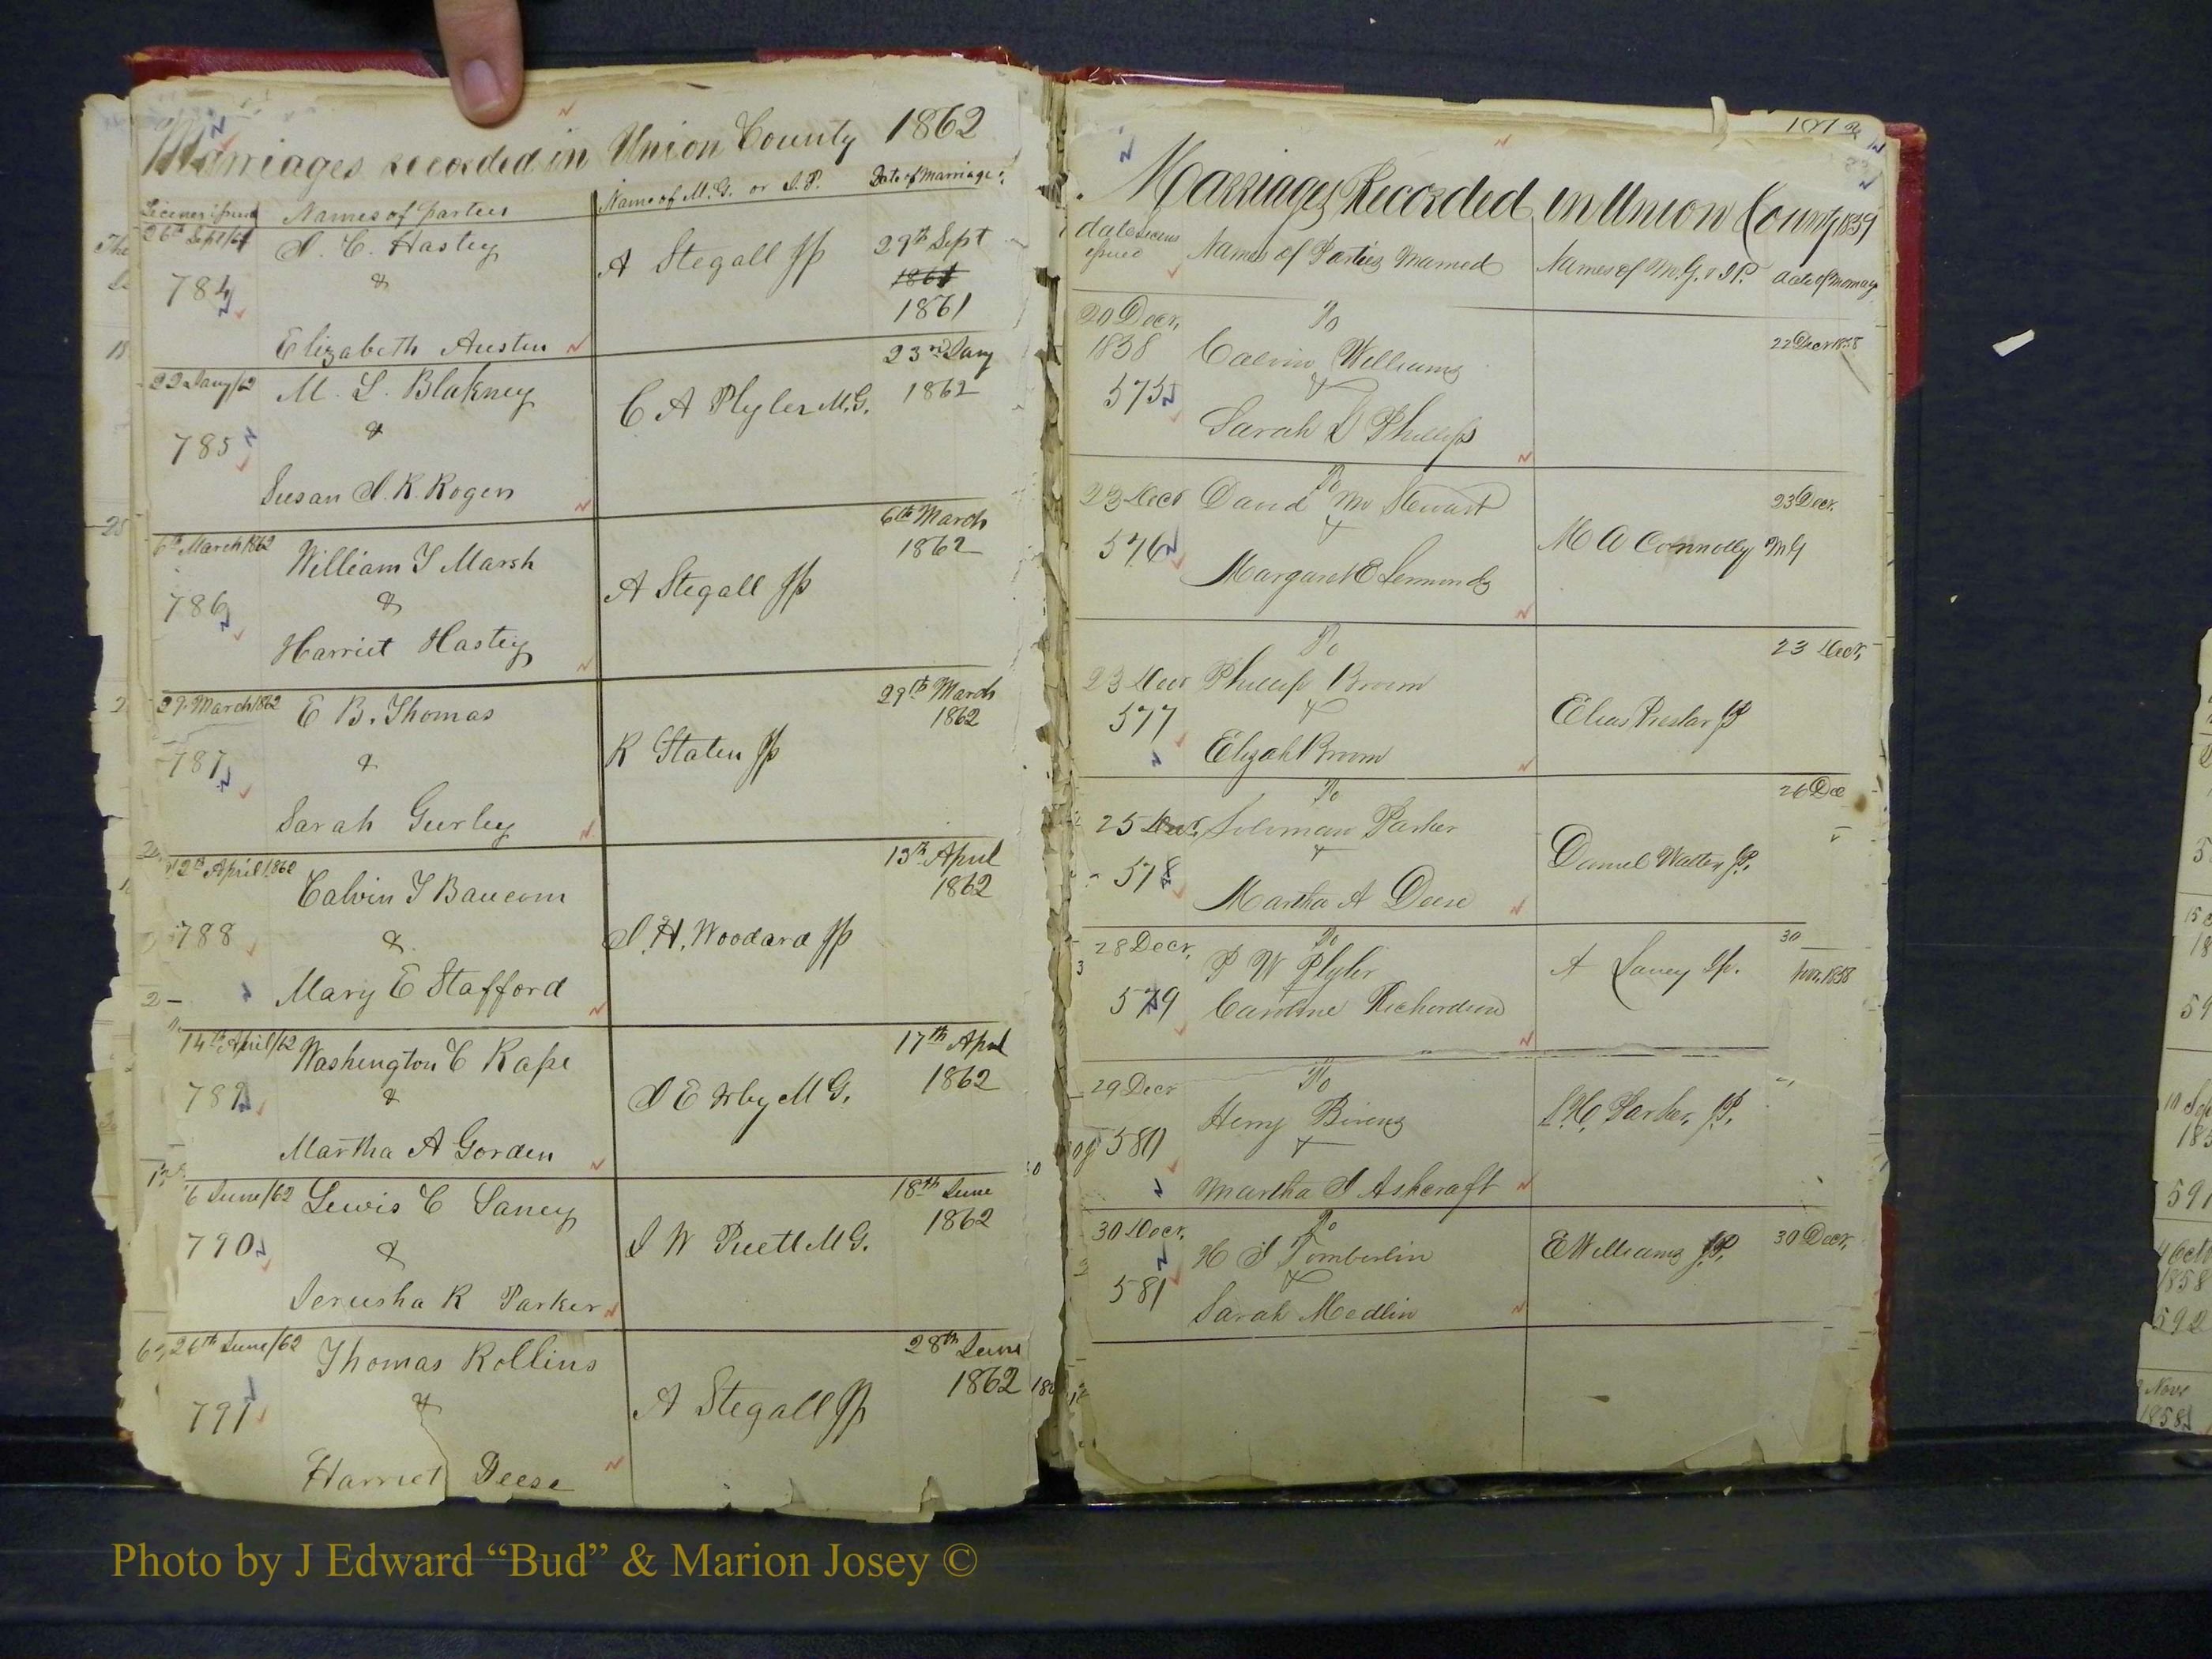 Marriages recorded in Union County 1862
License issued Names of parties Name of M.G. or J.P. Date of Marriage
26th Sept/61 J. C. Hasty A Stegall Jp 29th Sept
784 & 1861
1861
Elizabeth Austin
22 Jany/62 M. L. Blakney C A Plyler M.G. 23rd Jany
785 & 1862
Susan J. R. Rogers
6th March 1862 William T Marsh A Stegall Jp 6th March
786 & 1862
Harriet Hasty
27 March 1862 E B. Thomas R Staten Jp 29th March
787 & 1862
Sarah Gurley
12th April 1862 Calvin T Baucom J. H. Woodard Jp 13th April
788 & 1862
Mary E Stafford
14th April/62 Washington C Rape J E Irby M G. 17th April
789 & 1862
Martha A Gorden
6 June/62 Lewis C Laney J W Puett M G. 18th June
790 & 1862
Jerusha R Parker
26th June/62 Thomas Rollins A Stegall Jp 28th June
791 & 1862
Harriet Deese
Marriages Recorded in Union County 1859
date License issued Names of Parties Married Names of M.G. & J.P. date of marriage
20 Decr. To
1858 Calvin Williams 22 Decr 1858
575 &
Sarah D Phillips
To
23 Decr David M Stewart 23 Decr.
576 & M A Connolly M G
Margaret E Lemmonds
To
23 Decr Phillip Broom 23 Decr.
577 & Elias Preslar JP
Elizah Broom
To
25 Decr. Soloman Parker 26 Dec
578 & Daniel Walters JP.
Martha A Deese
To
28 Decr. P W Plyler A Laney Jp. 30
579 Caroline Richardson 1858
To
29 Decr Henry Bivens Parker JP.
580 &
Martha J Ashcraft
To
30 Decr. H J Tomberlin E Williams JP. 30 Decr.
581 &
Sarah Medlin
Photo by J Edward “Bud” & Marion Josey ©